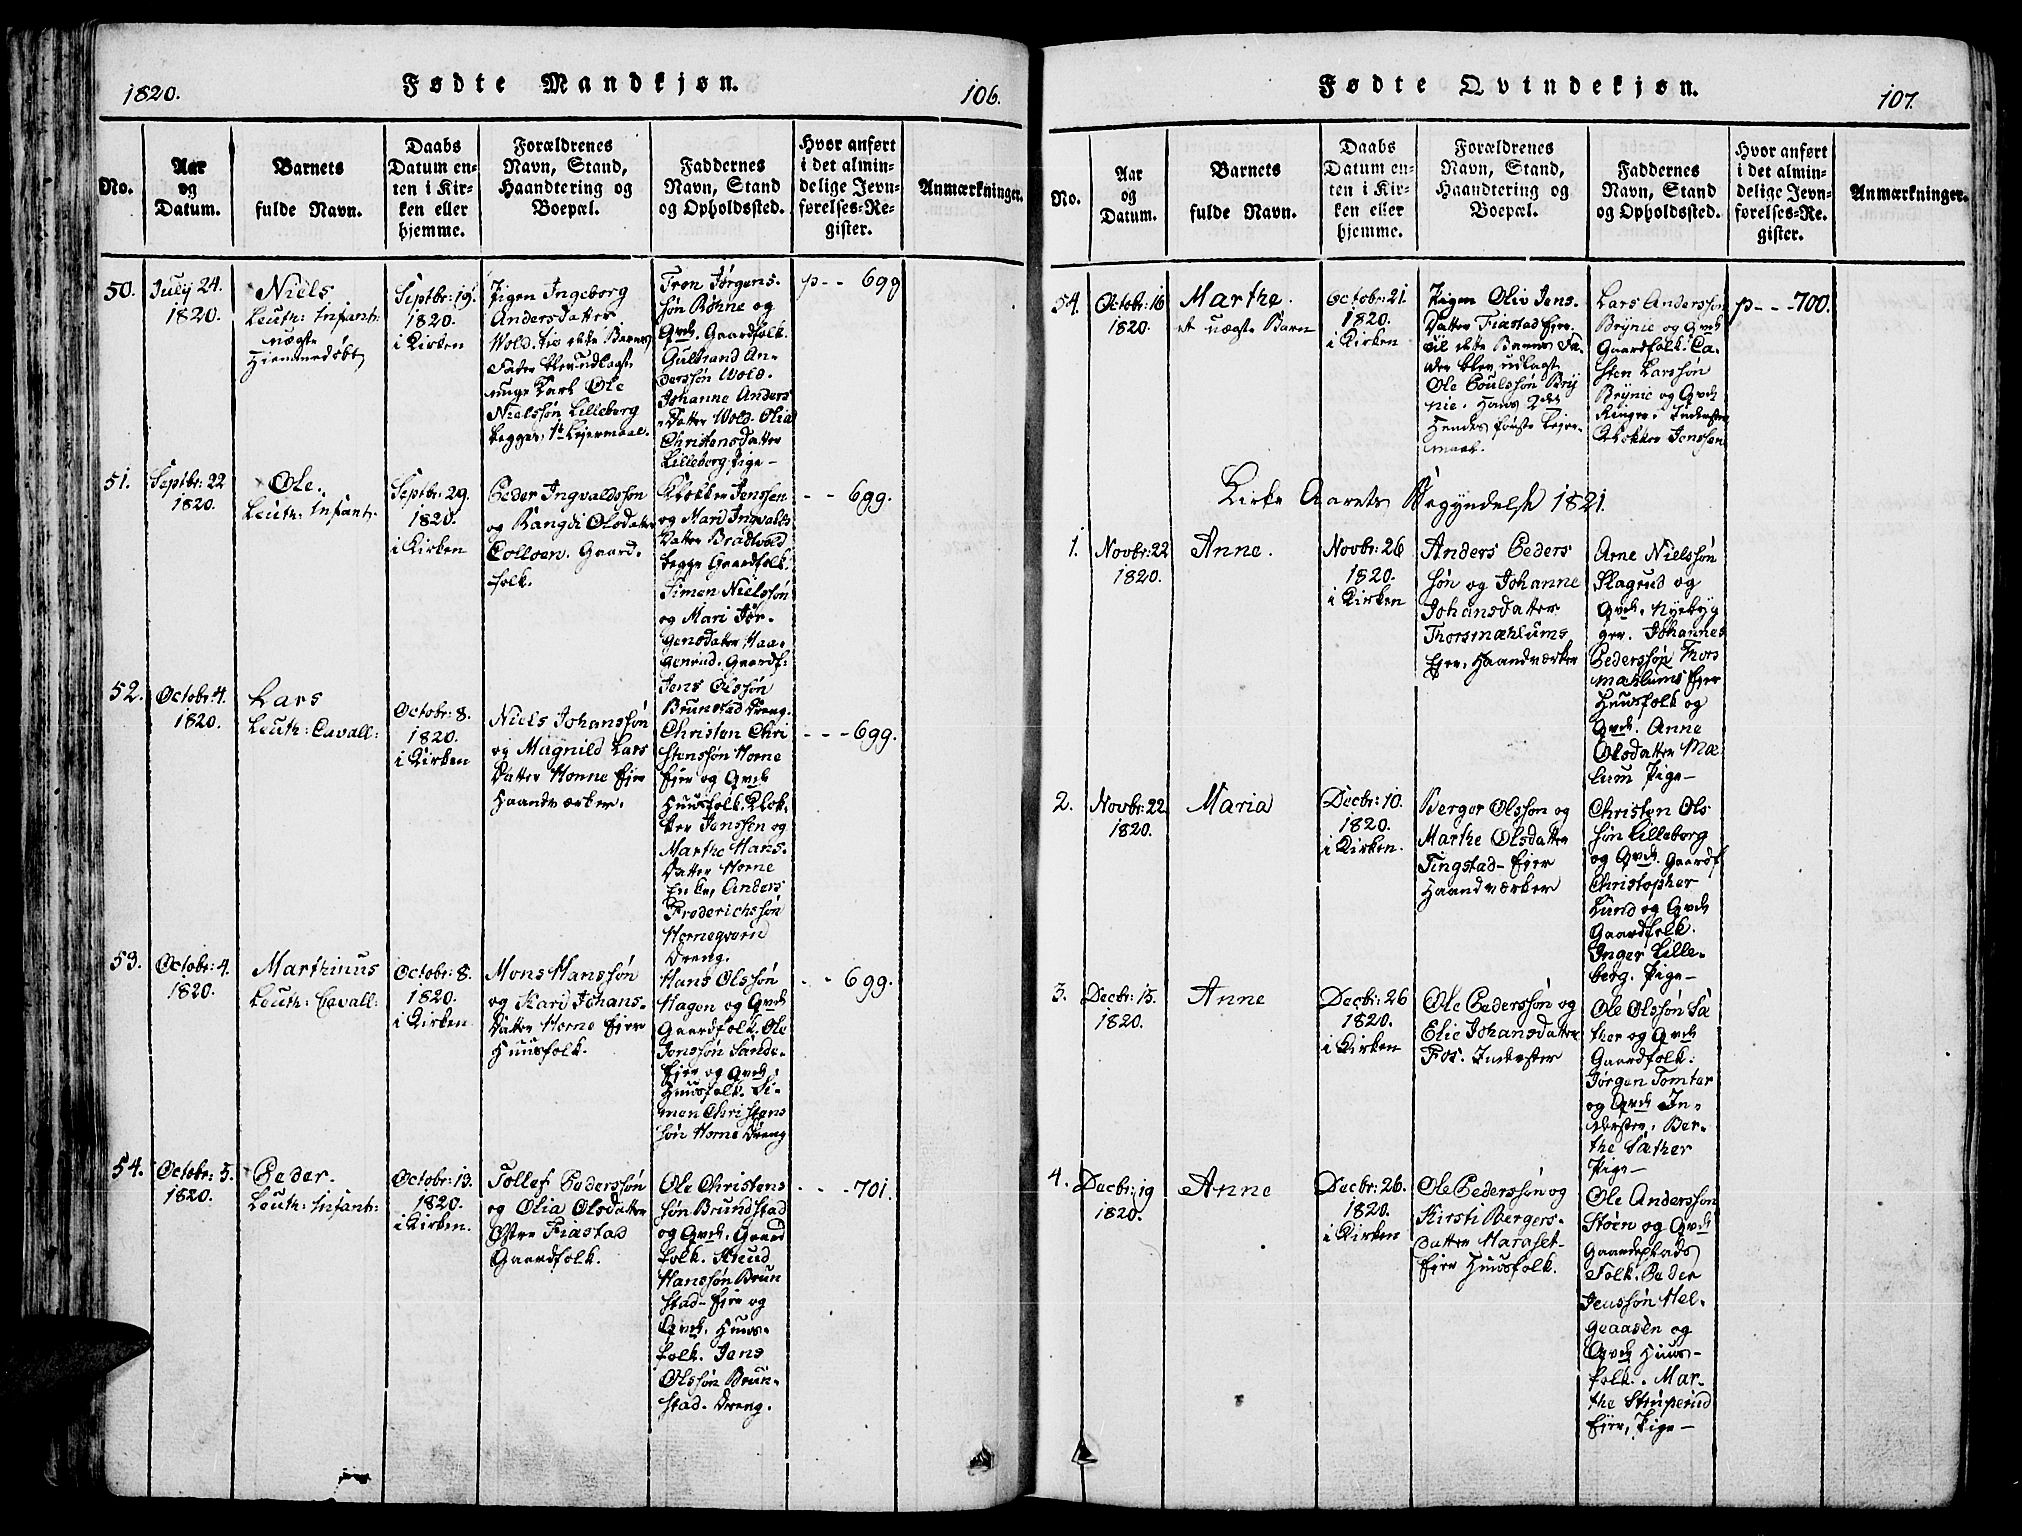 1820.
Fødte Mandkjøn.
106.
No.
Aar
og
Datum.
Barnets
fulde Navn.
Daabs
Datum en-
ten i Kir-
ken eller
hjemme.
Forældrenes
Navn, Stand,
Haandtering og
Boepæl.
Faddernes
Navn, Stand
og Opholdssted.
Hvor anført
i det almin-
delige Jevn-
førelses-Re-
gister.
Anmærkninger.
50.
July 24.
1820.
Niels
Leuth: Infant:
uægte
Hjemmedøbt
Septbr: 19.
1820.
i Kirken
Pigen Ingeborg
Andersdatter
Wold. til dette Barnes
Fader blev udlagt
unge Karl Ole
Nielssøn Lilleborg
begges 1te Lejermaal.
Tron Jørgens-
søn Røhne og
Qvde. Gaardfolk.
Gulbrand An-
derssøn Wold.
Johanne Anders
Datter Wold. Olia
Christensdatter
Lilleborg. Pige –
p - - 699
51.
Septbr: 22
1820.
Ole.
Leuth: Infant:
Septbr: 29.
1820.
i Kirken
Peder Ingvaldssøn
og Rangdi Olsdatter
Colloen. Gaard-
folk.
Klokker Jenssen
og Mari Ingvalds
Datter Bradvold
begge Gaardfolk.
Simen Nielssøn
og Mari Jør-
gensdatter Haa-
genrud. Gaardf:
Jens Olssøn
Brunstad Dreng.
- - 699.
52.
Octobr: 4.
1820.
Lars
Leuth: Cavall:
Octobr: 8.
1820.
i Kirken
Niels Johanssøn
og Magnild Lars
Datter Horne Ejer
Haandværker.
Christen Chri
stenssøn Horne
Ejer og Qvde
Huusfolk. Klok-
ker Jenssen og
Marthe Hans-
Datter Horne
Enke, Anders
Frederichssøn
Horneqvern
Dreng.
- - - 699.
53.
Octobr: 4.
1820.
Marthinus
Leuth: Cavall:
Octobr: 8.
1820.
i Kirken
Mons Hanssøn
og Kari Johans-
Datter Horne Ejer
Huusfolk.
Hans Olssøn
Hagen og Qvde
Gaardfolk. Ole
Jonssøn Sande-
Ejer og Qvde:
Huusfolk. Si-
men Christens
søn Horne Dreng
- - 699.
54.
Octobr: 5.
1820.
Peder.
Leuth: Infant:
Octobr: 13.
1820.
i Kirken.
Tollef Pederssøn
og Olia Olsdatter
Østre Fiastad
Gaardfolk.
Ole Christens
søn Brundstad
og Qvde. Gaard
folk. Knud
Hanssøn Brun
stad-Ejer og
Qvde. Huus-
folk. Jens
Olssøn Brun-
stad. Dreng.
- - - 701.
Fødte Qvindekjøn.
107.
No.
Aar
og
Datum.
Barnets
fulde Navn.
Daabs
Datum en-
ten i Kir-
ken eller
hjemme.
Forældrenes
Navn, Stand,
Haandtering og
Boepæl.
Faddernes
Navn, Stand
og Opholdssted.
Hvor anført
i det almin-
delige Jevn-
førelses-Re-
gister.
Anmærkninger.
54.
Octobr: 16
1820.
Marthe.
et uægte Barn
Octobr: 21.
1820.
i Kirken
Pigen Oliv Jens-
Datter Fiastad Ejer.
til dette Barns Fa-
der blev udlagt
Ole Poulssøn Bry
nie. Hans 2det
Hendes første Lejer-
maal.
Lars Anderssøn
Brynie og Qvde
Gaardfolk. Ca-
sten Larssøn
Brynie og Qvde
Ringer. Inderster
Klokker Jenssen
p - - - 700.
Kirke Aarets Begyndelse 1821.
1.
Novbr: 22
1820.
Anne.
Novbr: 26
1820.
i Kirken
Anders Peders
søn og Johanne
Johansdatter
Thorsmæhlums
Ejer. Haandværker
Arne Nielssøn
Slagrud og
Qvde. Nyebyg
ger. Johannes
Pederssøn Thors
mæhlums Ejer
Huusfolk og
Qvde. Anne
Olsdatter Mæ
lum Pige –
2.
Novbr: 22.
1820.
Maria
Decbr: 10.
1820.
i Kirken.
Berger Olssøn og
Marthe Olsdatter
Tingstad-Ejer
Haandværker
Christen Ols
søn Lilleborg
og Qvde. Gaardf
Christopher
Lund og Qvde
Gaardfolk.
Inger Lille-
borg. Pige –
3.
Decbr: 15.
1820.
Anne
Decbr: 26
1820.
i Kirken
Ole Pederssøn og
Elie Johansdatter
Fos. Inderster
Ole Olssøn Sæ
ther og Qvde
Gaardfolk:
Jørgen Tomter
og Qvde In-
derster. Ber-
the Sæther
Pige –
4.
Decbr: 19
1820.
Anne
Decbr: 26.
1820.
i Kirken
Ole Pederssøn og
Kirsti Bergers-
datter Haraset-
Ejer Huusfolk.
Ole Anderssøn
Støen og Qvde
Gaardeplads
Folk. Peder
Jenssøn Hel-
geaasen og
Qvde Huus-
folk. Mar-
the Struperud
Ejer, Pige –